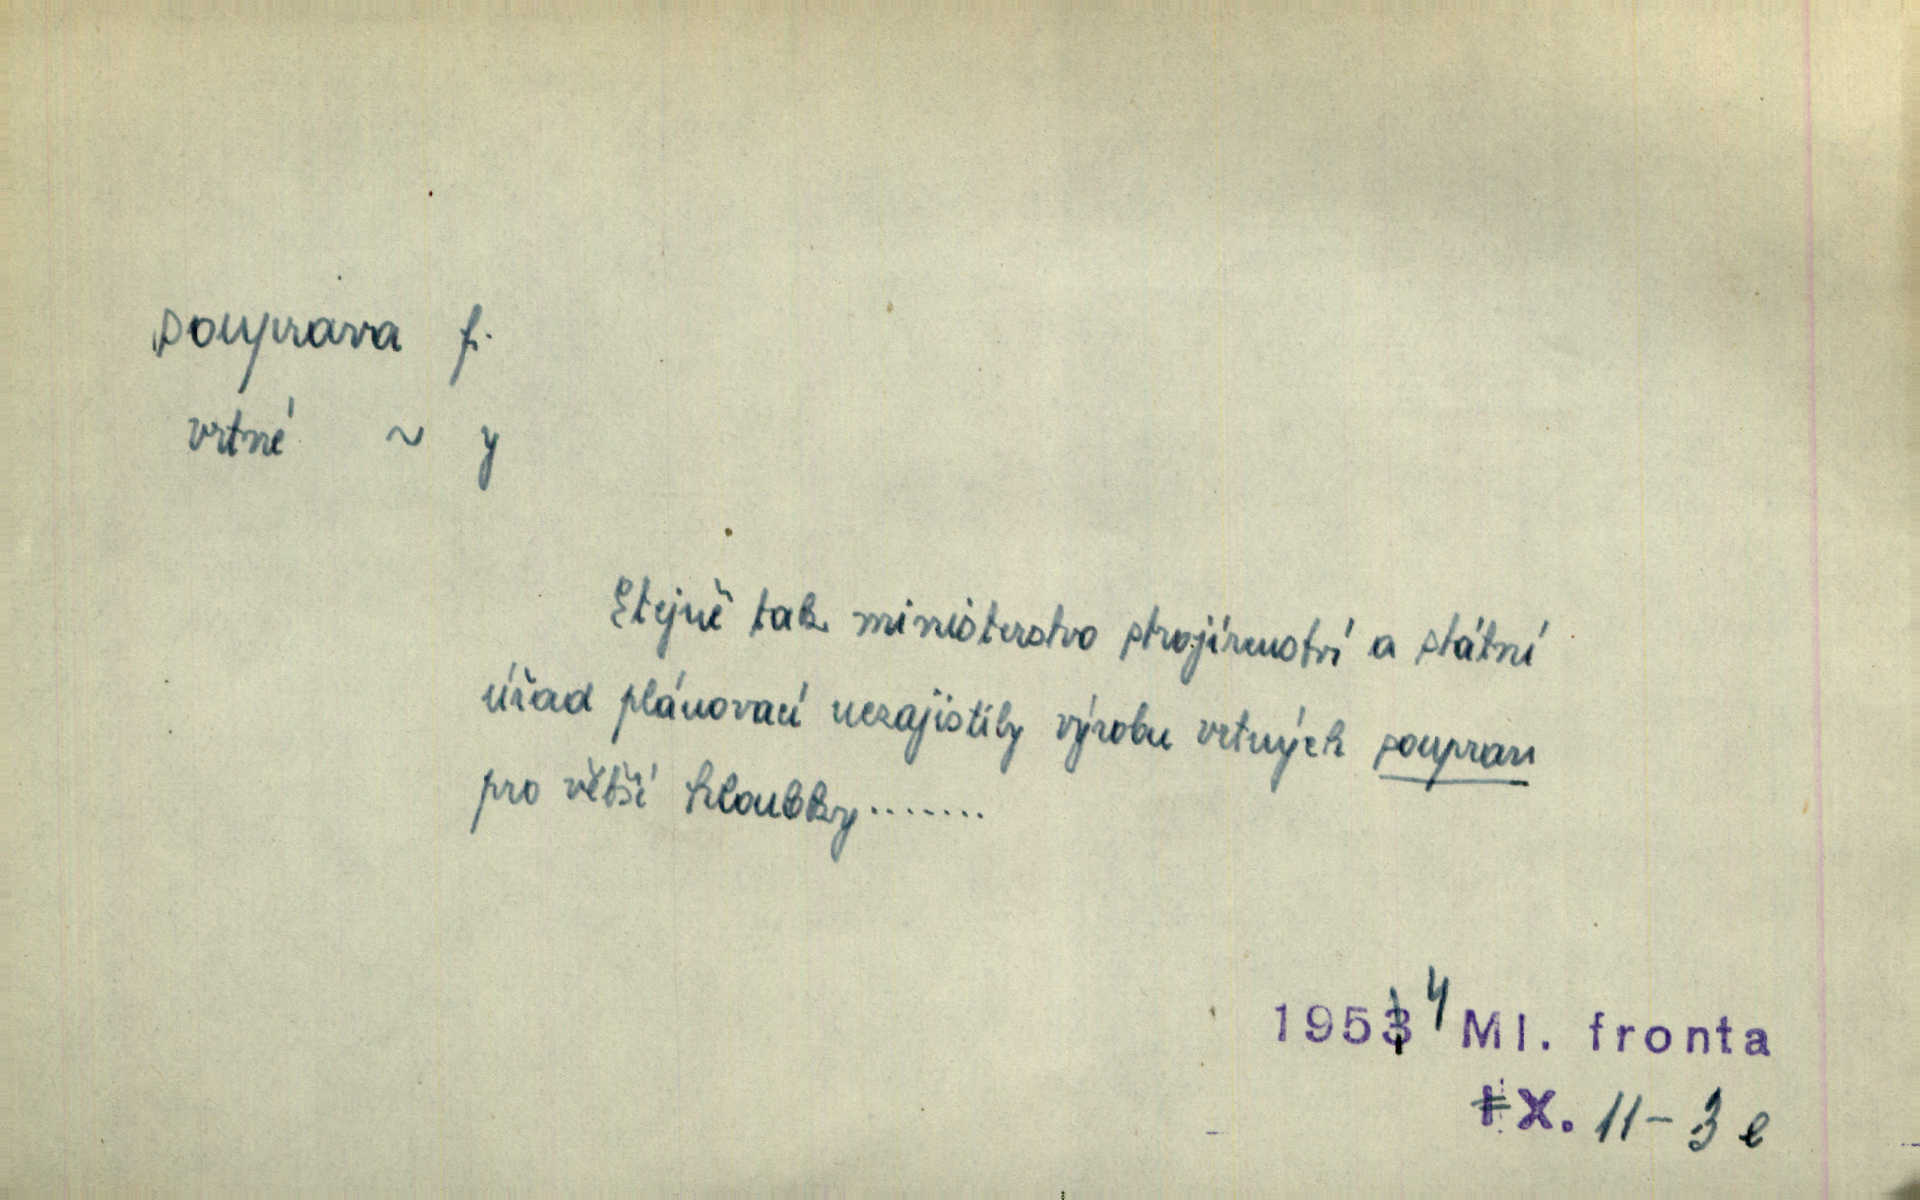 souprava f.
vrtné ~ y
Stejně tak ministerstvo strojírenství a státní
úřad plánovací nezajistily výrobu vrtných souprav
pro větší hloubky.......
1953 4 Ml. fronta
IX. 11-3 e